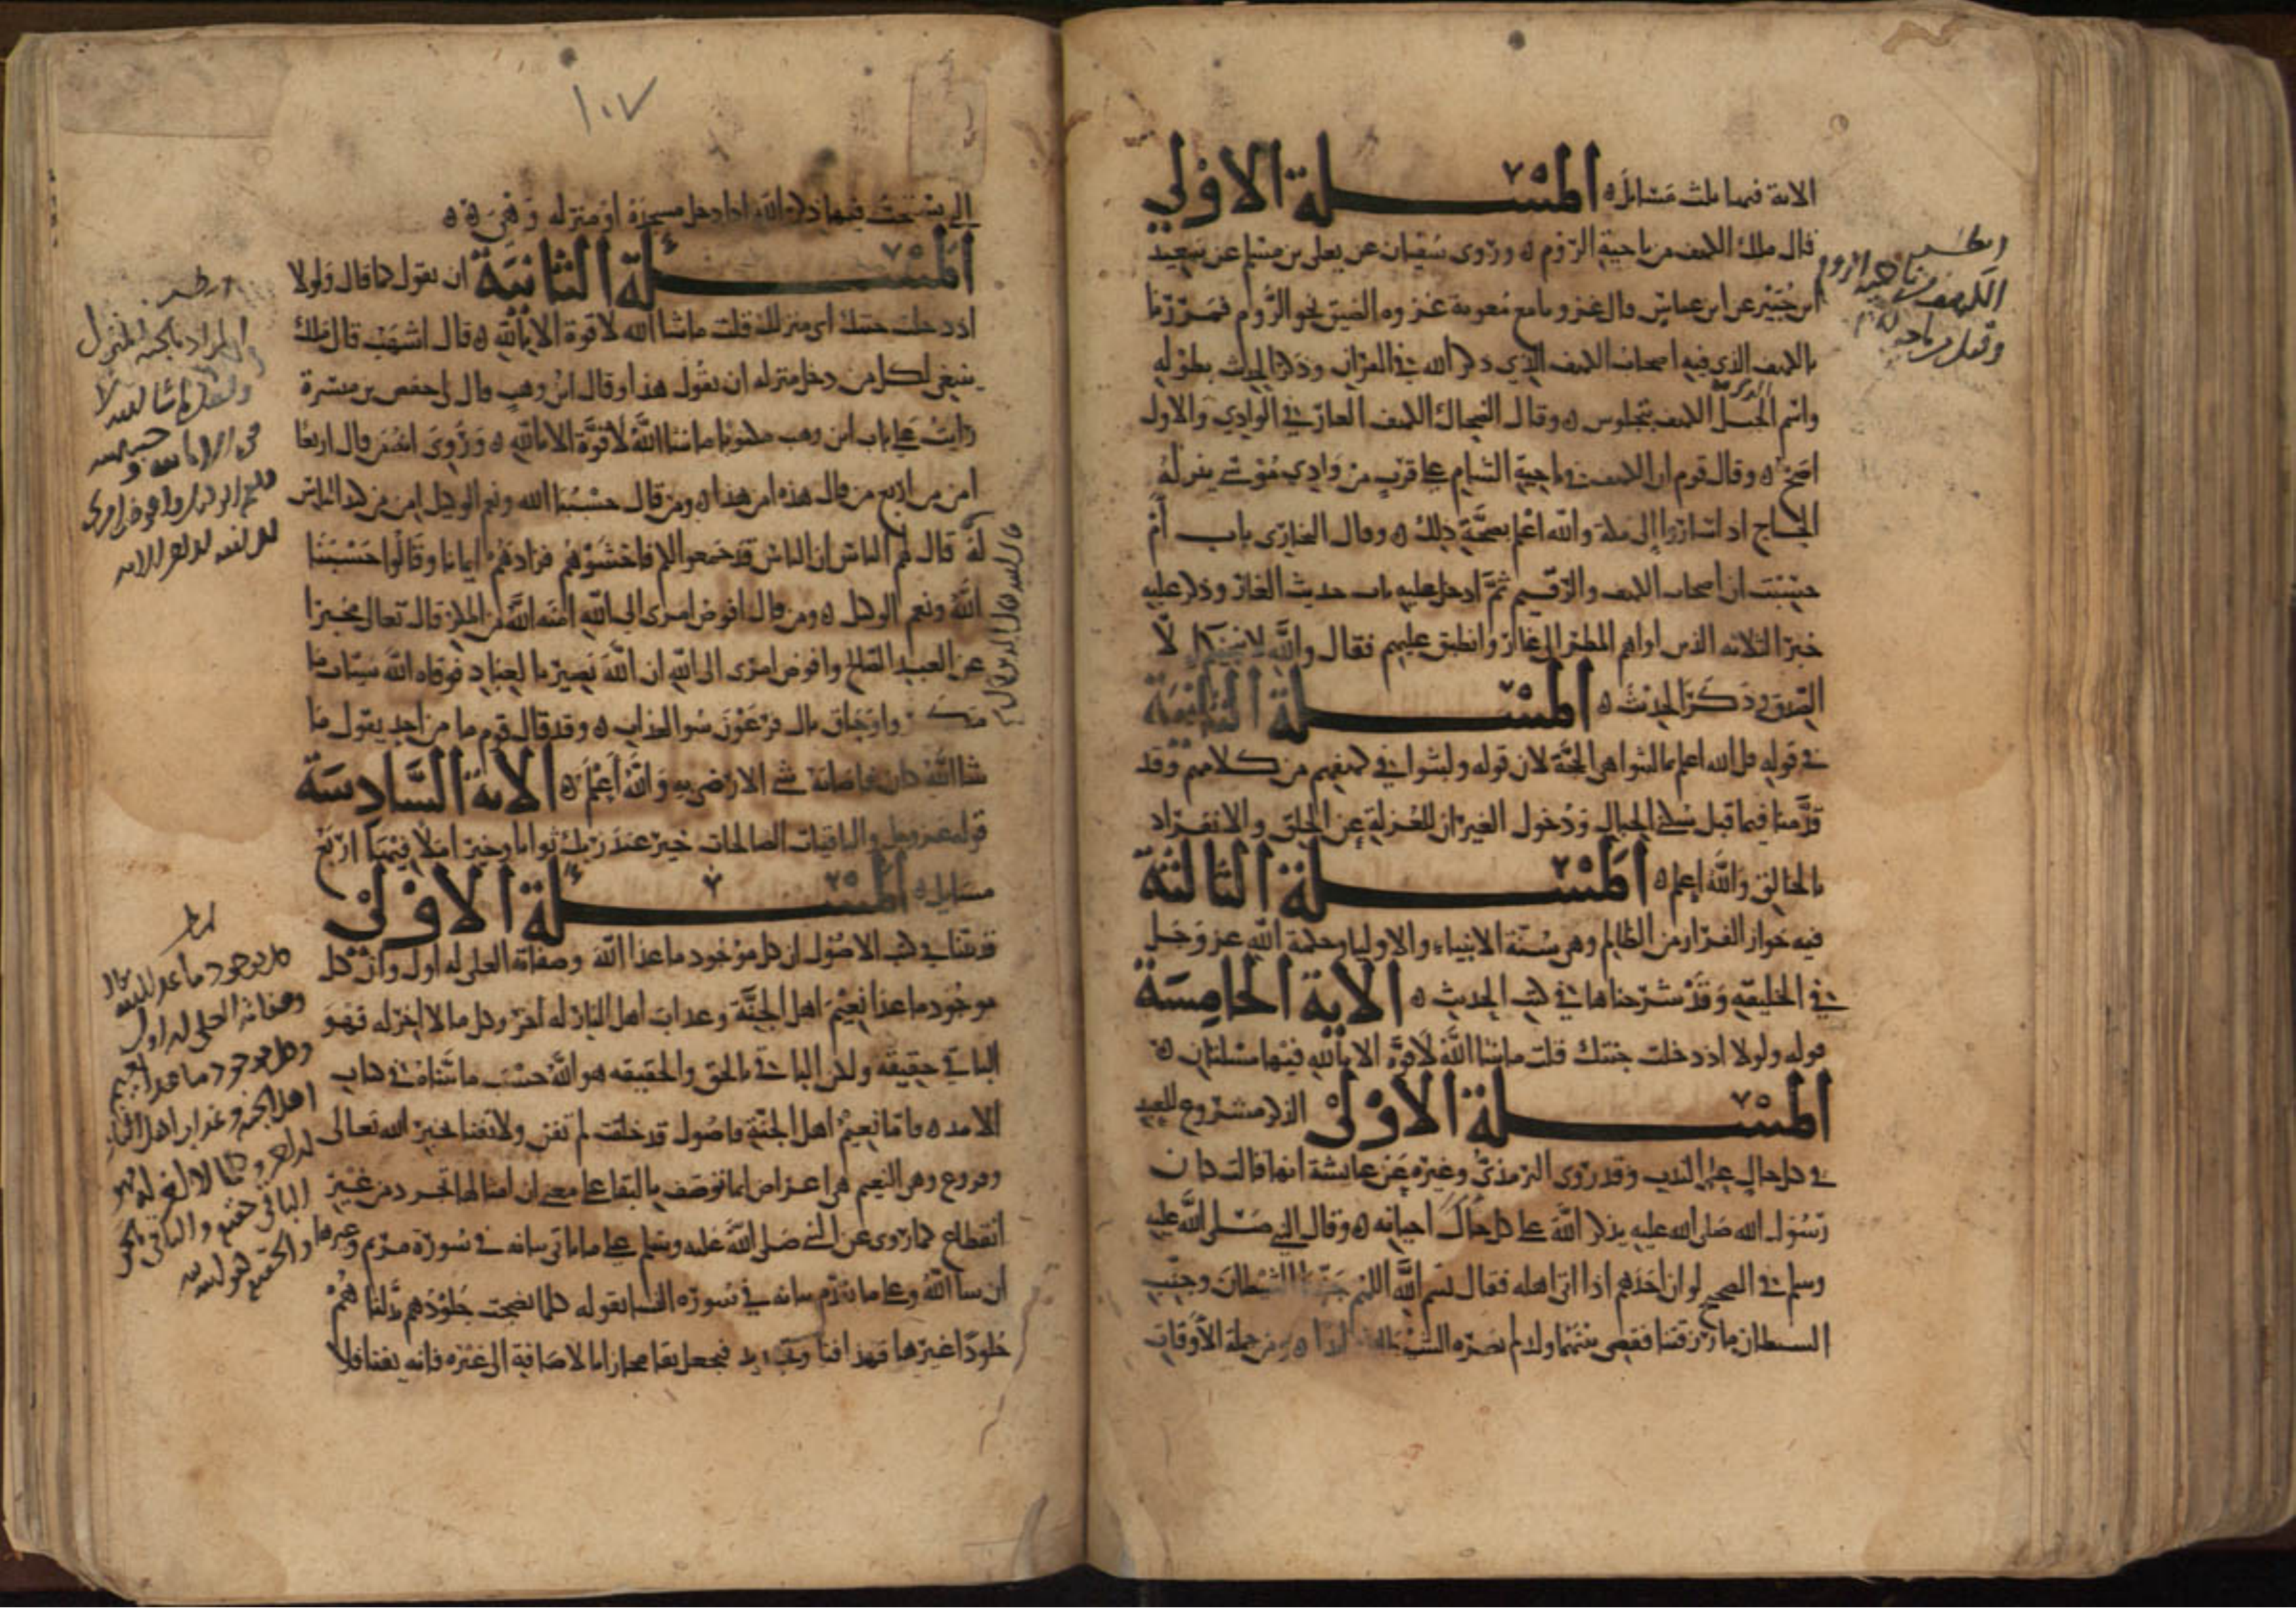 الاية فيها ثلث مسايل ه المسلة الاولى
قال ملك الكهف من ناحية الروم ه وروى سفيان عن يعلى بن مسلم عن سعيد
ابن جبير عن ابن عباس قال غزونا مع معوية غزوه المضيق نحو الروم فمررنا
بالكهف الذي فيه اصحاب الكهف الذي ذكر الله في القران وذكر الحديث بطوله
واسم الجبل الذي فيه الكهف بنجلوس ه وقال الضحاك الكهف الغار في الوادي والاول
اصح ه وقال قوم ان الكهف في ناحية الشام على قرب من وادي موسى ينزله
الحجاج اذا ساروا الى مكة والله اعلم بصحة ذلك ه وقال البخاري باب أم
حسبت ان اصحاب الكهف والرقيم ثم ادخل عليه باب حديث الغار وذكر عليه
خبر الثلاثه الذين اواهم المطر الى غار وانطبق عليهم فقال والله لا ينجيكم الا
الصدق وذكر الحديث ه المسلة الثانية
في قوله قل الله اعلم بما لبثوا هي الحجة لان قوله ولبثوا في كهفهم من كلامهم وقد
قدمنا فيما قبل سكنى الجبال ودخول الغيران للعزلة عن الخلق والانفراد
بالخالق والله اعلم ه المسلة الثالثة
فيه جواز الفرار من الظالم وهي سنة الانبياء والاوليا وحكمة الله عز وجل
في الخليقه وقد شرحناها في كتب الحديث ه الاية الخامسة
قوله ولولا اذ دخلت جنتك قلت ما شا الله لا قوة الا بالله فيها مسئلتان ه
المسلة الاولى الذكر مشروع للعبد
في كل حال على الندب وقد روى الترمذي وغيره عن عايشة انها قالت كان
رسول الله صلى الله عليه يذكر الله على كل حال احيانه ه وقال النبي صلى الله عليه
وسلم في الصحيح لو ان احدهم اذا اتى اهله فقال بسم الله اللهم جنبنا الشيطان وجنب
الشيطان ما رزقتنا فقضى بينهما ولد لم يضره الشيطان ابدا ه ومن جملة الاوقات
انظر
الكهف من ناحيه الروم
وقيل من ناحية الشام
١٠٧
التي يستحب فيها ذكر الله اذا دخل مسجده او منزله وهي ه
المسئلة الثانية ان يقول كما قال ولولا
اذ دخلت جنتك اي منزلك قلت ما شا الله لا قوة الا بالله ه قال اشهب قال ملك
ينبغي لكل من دخل منزله ان يقول هذا وقال ابن وهب قال لي حفص بن ميسرة
رايت على باب ابن وهب مكتوبا ما شا الله لا قوة الا بالله ه وروى ان قال اربعا
امن من اربع من قال هذه امن هذا ه ومن قال حسبنا الله ونعم الوكيل امن من كيد الناس
له قال لهم الناس ان الناس قد جمعوا لكم فاخشوهم فزادهم ايمانا وقالوا حسبنا
الله ونعم الوكيل ه ومن قال افوض امري الى الله امنه الله من المكر قال تعالى مخبرا
عن العبد الصالح وافوض امري الى الله ان الله بصير بالعباد فوقاه الله سيئات ما
مكروا وحاق بال فرعون سو العذاب ه وقد قال قوم ما من احد يقول ما
شا الله كان فاصابه شي الا رضي به والله اعلم ه الاية السادسة
قوله عز وجل والباقيات الصالحات خير عند ربك ثوابا وخير املا فيها اربع
مسايل ه المسئلة الاولى
قد بينا في كتب الاصول ان كل موجود ما عدا الله وصفاته العلى له اول وان كل
موجود ما عدا نعيم اهل الجنة وعذاب اهل النار له اخر وكل ما لا اخر له فهو
الباقي حقيقه ولكن الباقي بالحق والحقيقه هو الله حسب ما بيناه في كتاب
الامد ه فاما نعيم اهل الجنة فاصول قد خلقت لم تفن ولا تفنا بخبر الله تعالى
وفروع وهي النعيم هي اعراض انما توصف بالبقا على معنى ان امثالها تتجدد من غير
انقطاع كما روى عن النبي صلى الله عليه وسلم على ما ياتي بيانه في سورة مريم وغيرها
ان شا الله وعلى ما تقدم بيانه في سورة النسا بقوله كلما نضجت جلودهم بدلناهم
جلودا غيرها فهذا فنا وتجديد فيجعل بقا مجازا بالاضافة الى غيره فانه يفنا فلا
انظر
المراد بالجنة المنزل
وليقل ما شا الله لا
قوة الا بالله
انظر
كل موجود ما عدا الله تعالى
وصفاته العلى له اول
وكل موجود ما عدا نعيم
اهل الجنة وعذاب اهل النار
له اخر وكل ما لا اخر له فهو
الباقي حقيقة والباقي بالحق
والحقيقة هو الله